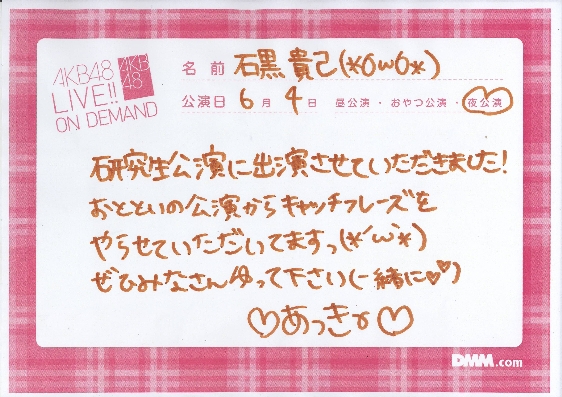 AKB48
LIVE!!
ON DEMAND
AKB
48
名前 石黒貴己(*OωO*)
公演日 6月4日 昼公演・おやつ公演・夜公演
研究生公演に出演させていただきました!
おとといの公演からキャッチフレーズを
やらせていただいてますっ(*´ω`*)
ぜひみなさんゆって下さい(一緒に♥♥)
♡あっきー♡
DMM.com